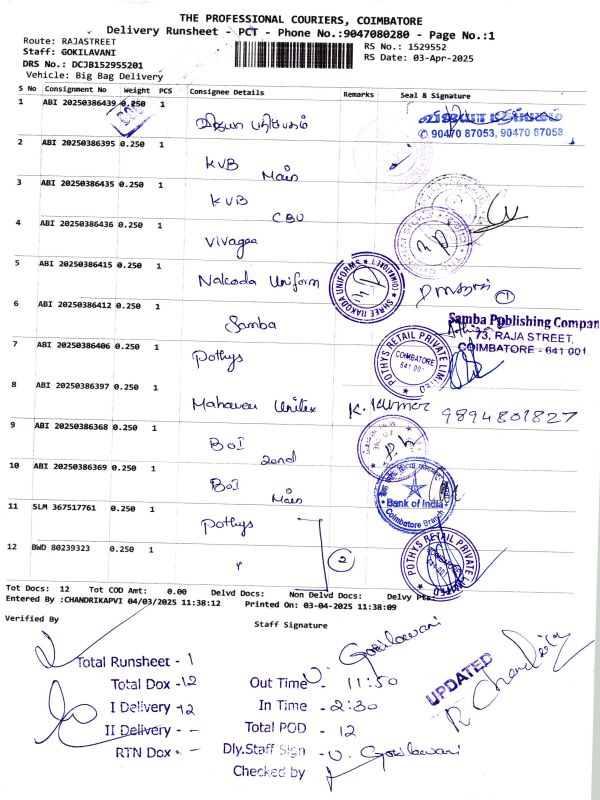 THE PROFESSIONAL COURIERS, COIMBATORE
Delivery Runsheet - PCT - Phone No.:9047080280 - Page No.:1
Route: RAJASTREET
Staff: GOKILAVANI
RS No.: 1529552
DRS No.: DCJB152955201
RS Date: 03-Apr-2025
Vehicle: Big Bag Delivery
S No Consignment No Weight PCS Consignee Details Remarks Seal & Signature
1 ABI 20250386439 0.250 1
90470 87053, 90470 87058
2 ABI 20250386395 0.250 1 KVB Main
3 ABI 20250386435 0.250 1 KVB CBU
4 ABI 20250386436 0.250 1 Vivagaa
5 ABI 20250386415 0.250 1 Nakoda Uniform
SHREE NAKODA UNIFORMS
6 ABI 20250386412 0.250 1 Samba
Samba Publishing Compan
73, RAJA STREET,
COIMBATORE - 641 001.
7 ABI 20250386406 0.250 1 Pothys
POTHYS RETAIL PRIVATE LIMITED
COIMBATORE
641 001
8 ABI 20250386397 0.250 1 Mahaveer Unitex K. Kumar 9894801827
9 ABI 20250386368 0.250 1 BOI 2nd
10 ABI 20250386369 0.250 1 BOI Main
Bank of India
Coimbatore Branch
11 SLM 367517761 0.250 1 Pothys
12 BWD 80239323 0.250 1 " 2
POTHYS RETAIL PRIVATE LIMITED
Tot Docs: 12 Tot COD Amt: 0.00 Delvd Docs: Non Delvd Docs: Delvy Pts:
Entered By :CHANDRIKAPVI 04/03/2025 11:38:12 Printed On: 03-04-2025 11:38:09
Verified By Staff Signature
V. Gokilavani
Total Runsheet - 1
Total Dox - 12 Out Time - 11:50
UPDATED
I Delivery - 12 In Time - 2:30
II Delivery - - Total POD - 12
RTN Dox - - Dly.Staff Sign - V. Gokilavani
Checked by